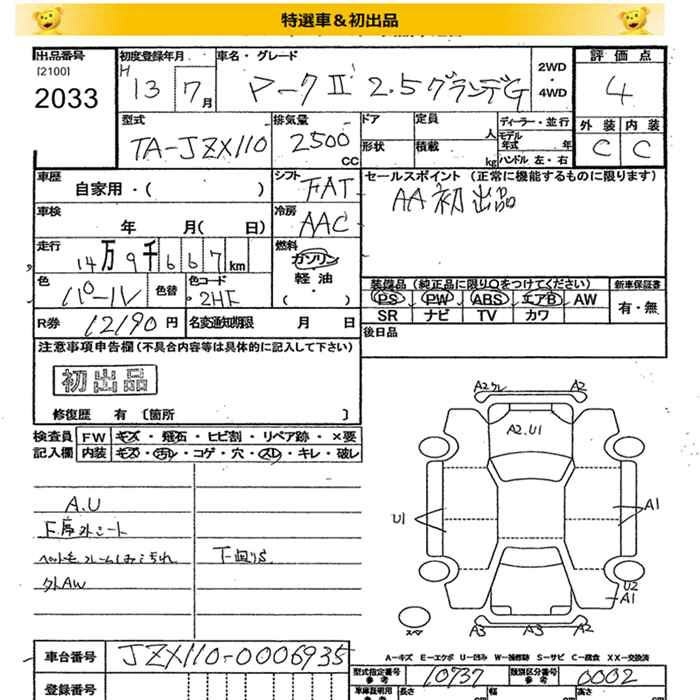 特選車＆初出品
出品番号 初度登録年月 車名・グレード 評価点
[2100]
2033
H 13 7月 マークⅡ 2.5グランデG 2WD・4WD 4
型式 排気量 ドア 定員 人 ディーラー・並行 外装 内装
TA-JZX110 2500CC 形状 積載 kg モデル年式 年 ハンドル 左・右 C C
車歴 自家用・( ) シフト FAT セールスポイント (正常に機能するものに限ります)
車検 年 月( 日) 冷房 AAC AA初出品
走行 14万9千667km 燃料 ガソリン・軽油・
色 パール 色替 色コード 2HF
装備品 (純正品に限り○をつけてください) 新車保証書
PS PW ABS エアB AW 有・無
SR ナビ TV カワ
R券 12190円 名変通知期限 月 日 後日品
注意事項申告欄(不具合内容等は具体的に記入して下さい)
初出品
修復歴 有 〔箇所 〕
検査員 FW キズ・飛石・ヒビ割・リペア跡・×要
記入欄 内装 キズ・汚レ・コゲ・穴・スレ・キレ・破レ
A.U
F席外シート
下回りS
外AW
A2 A2
A2.U1
U1 A1
U2
A1
スペア
A3 A3 A2
A－キズ E－エクボ U－凹み W－補修跡 S－サビ C－腐食 XX－交換済
車台番号 JZX110-0006935
型式指定番号 参考 10737 類別区分番号 参考 0002
登録番号 車庫証明用 参考 長さ cm 幅 cm 高さ cm